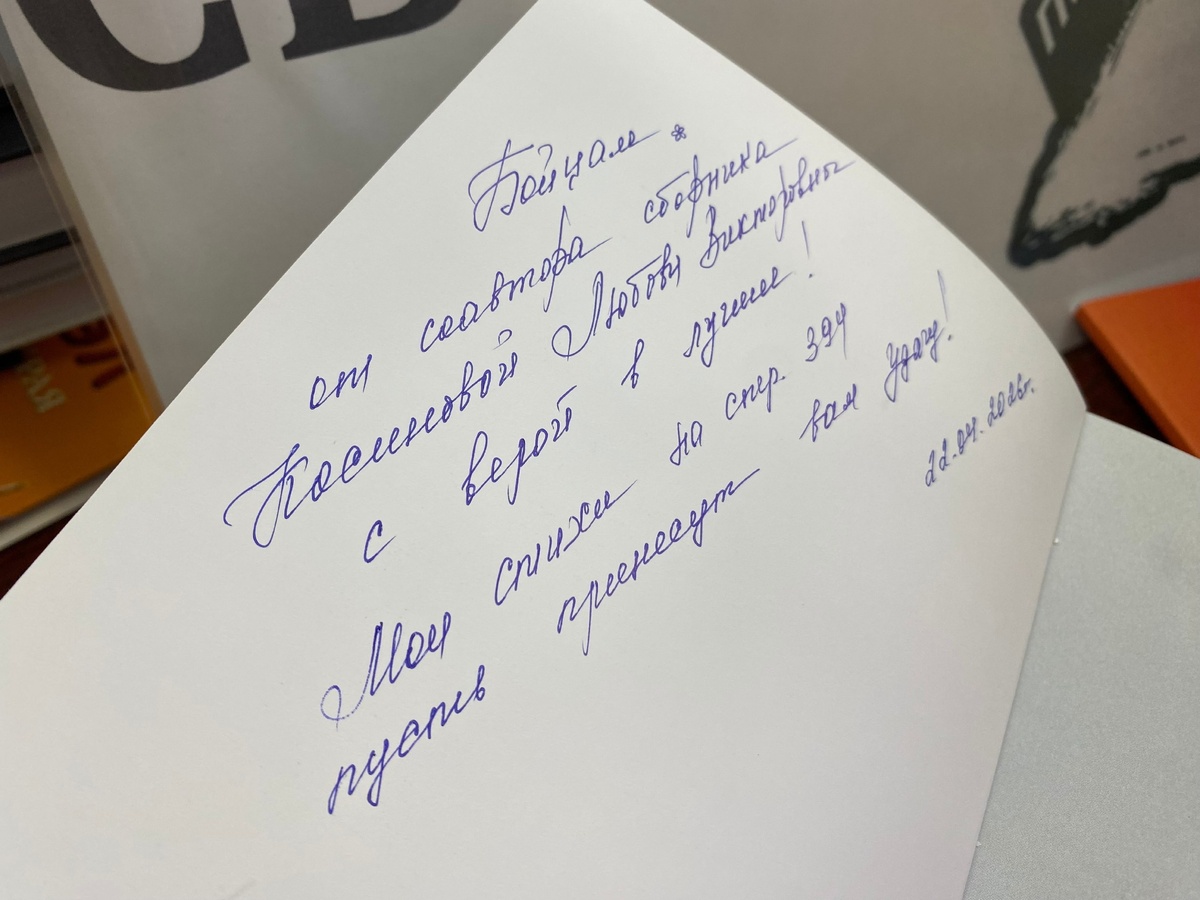 СВ
Бойцам *
от соавтора сборника
Косиновой Любови Викторовны
с верой в лучшее!
Мои стихи на стр. 394
пусть принесут вам удачу!
22.04.2026г.
РАЯ